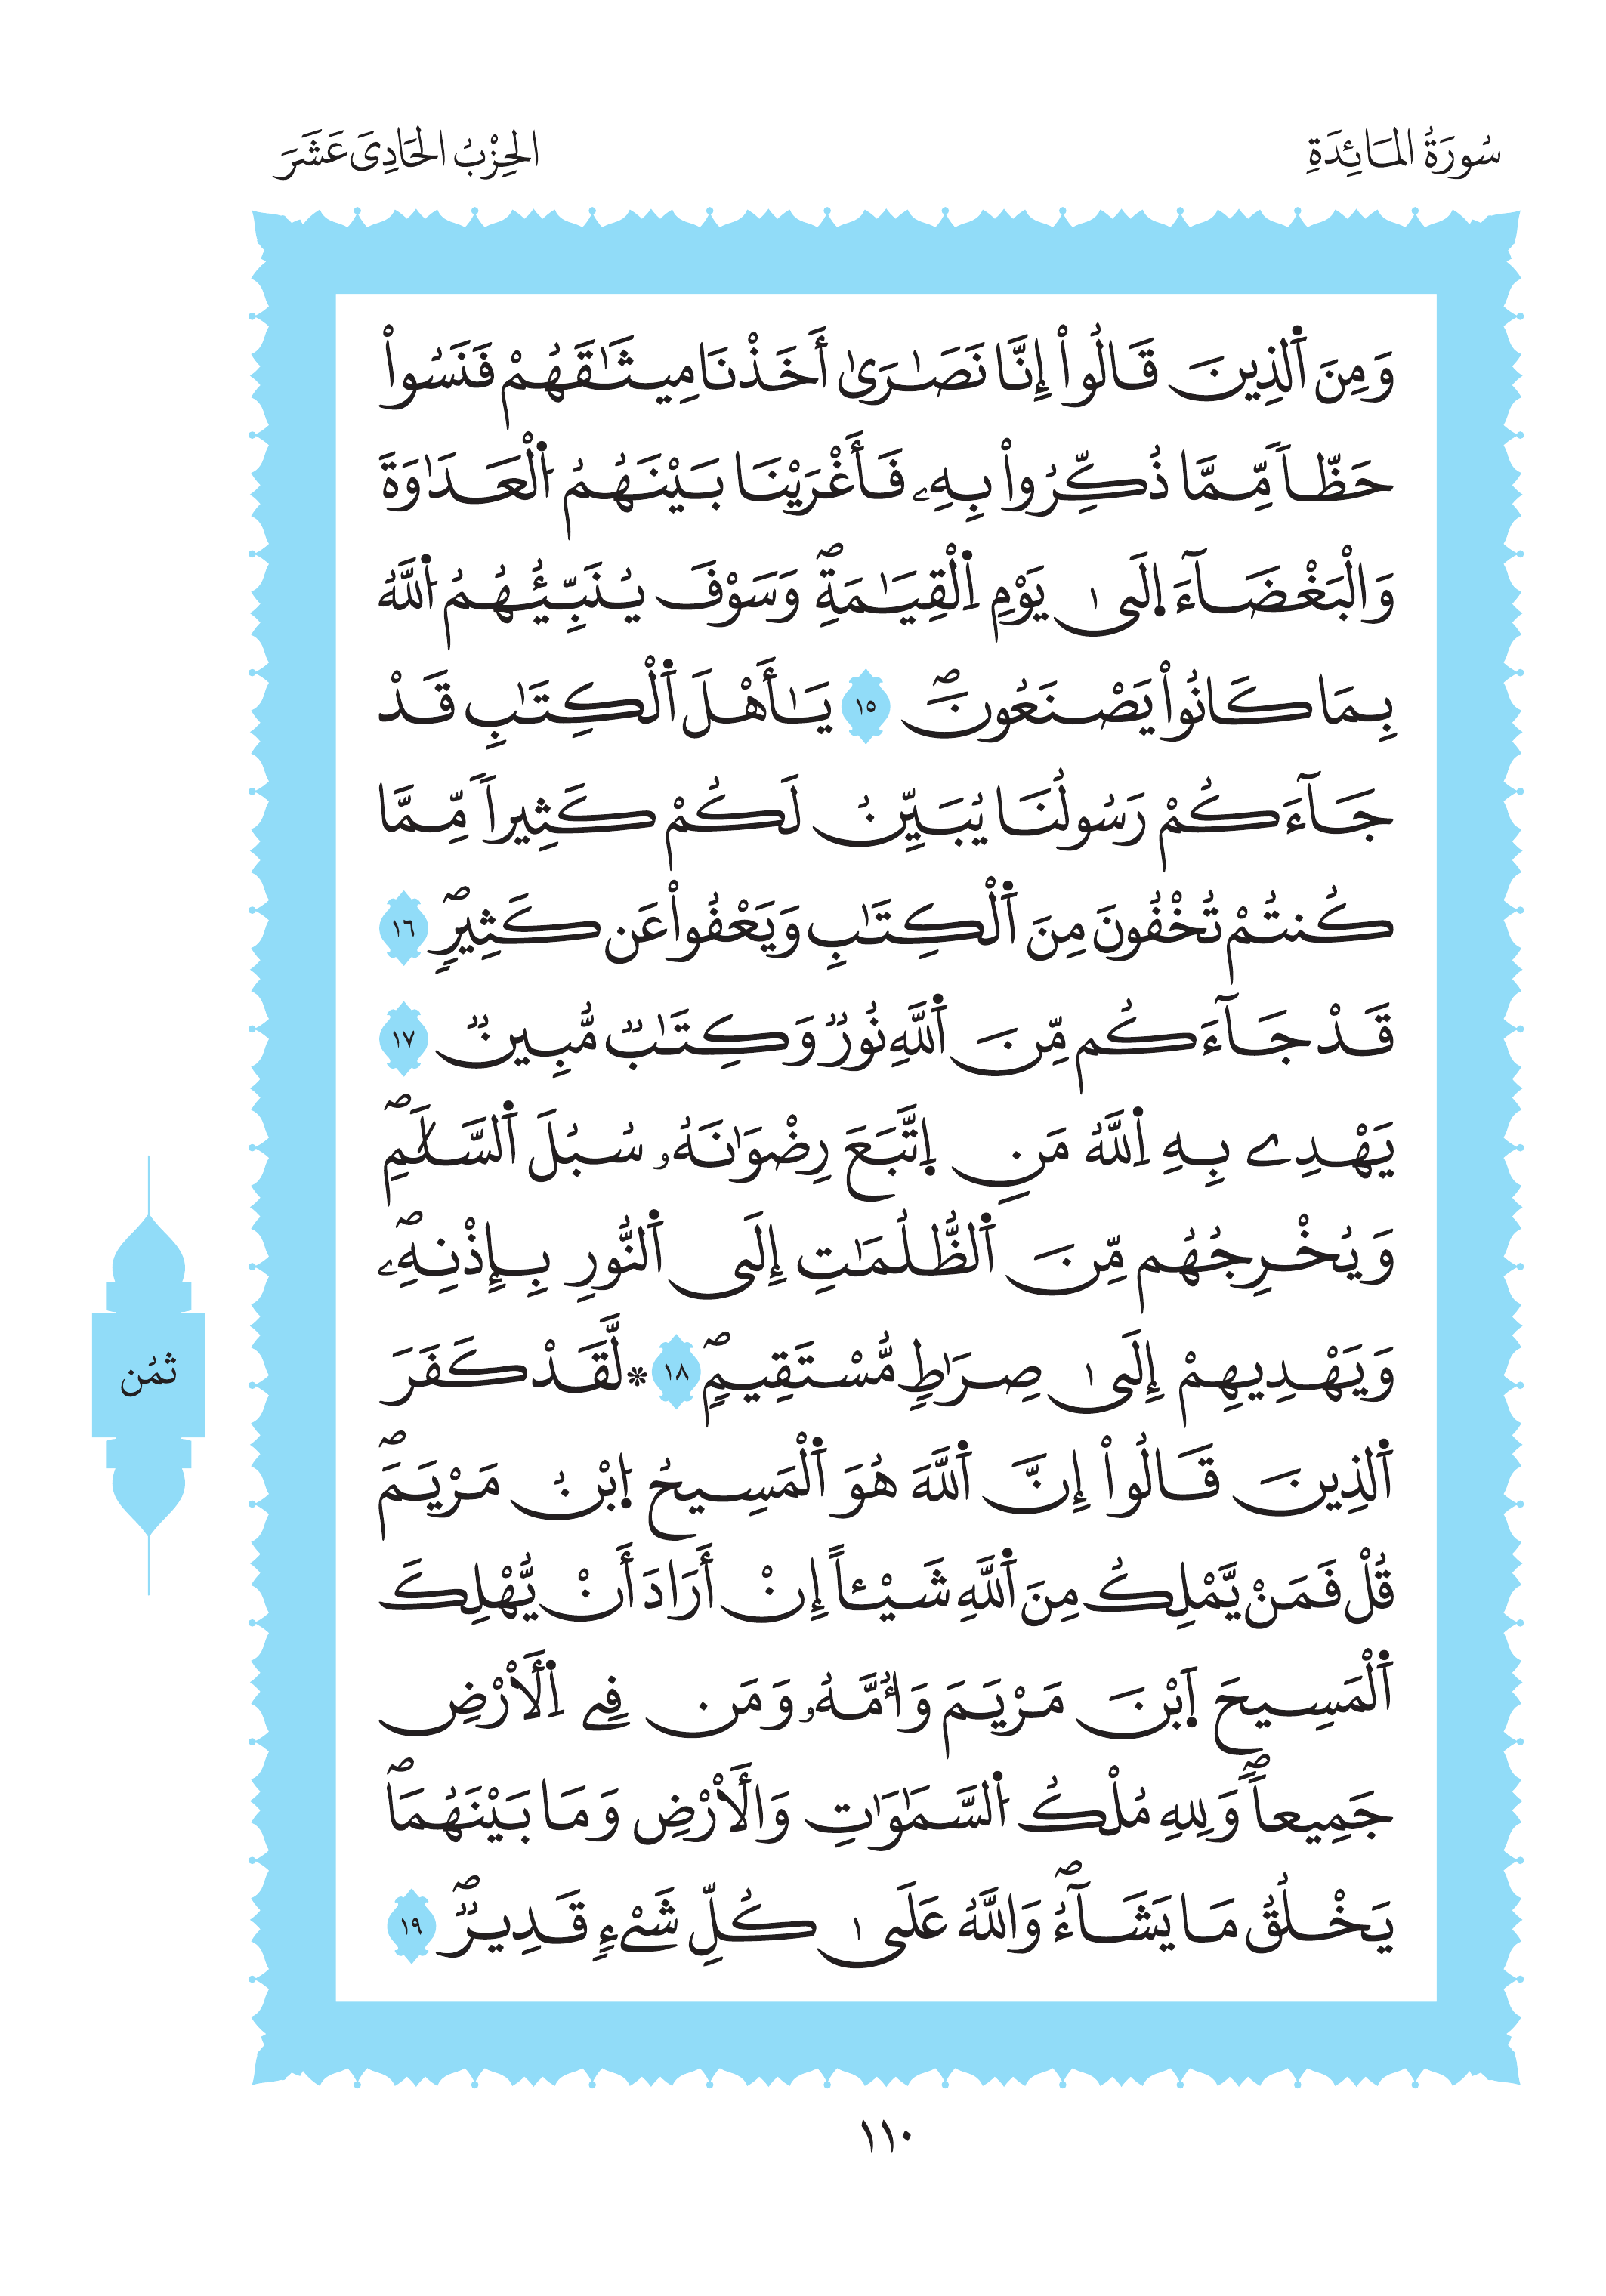 سُورَةُ المَائِدَةِ
الحِزْبُ الحَادِىَ عَشَرَ
وَمِنَ اَ۬لذِينَ قَالُواْ إِنَّا نَصَٰر۪يٰٓ أَخَذْنَا مِيثَٰقَهُمْ فَنَسُواْ
حَظّاٗ مِّمَّا ذُكِّرُواْ بِهِۦ فَأَغْرَيْنَا بَيْنَهُمُ اُ۬لْعَدَٰوَةَ
وَالْبَغْضَآءَ ا۪لَىٰ يَوْمِ اِ۬لْقِيَٰمَةِۖ وَسَوْفَ يُنَبِّئُهُمُ اُ۬للَّهُ
بِمَا كَانُواْ يَصْنَعُونَۖ ١٥ يَٰأَهْلَ اَ۬لْكِتَٰبِ قَدْ
جَآءَكُمْ رَسُولُنَا يُبَيِّنُ لَكُمْ كَثِيراٗ مِّمَّا
كُنتُمْ تُخْفُونَ مِنَ اَ۬لْكِتَٰبِ وَيَعْفُواْ عَن كَثِيرٖۖ ١٦
قَدْ جَآءَكُم مِّنَ اَ۬للَّهِ نُورٞ وَكِتَٰبٞ مُّبِينٞ ١٧
يَهْدِے بِهِ اِ۬للَّهُ مَنِ اِ۪تَّبَعَ رِضْوَٰنَهُۥ سُبُلَ اَ۬لسَّلَٰمِۖ
وَيُخْرِجُهُم مِّنَ اَ۬لظُّلُمَٰتِ إِلَى اَ۬لنُّورِ بِإِذْنِهِۦۖ
وَيَهْدِيهِمْ إِلَىٰ صِرَٰطٖ مُّسْتَقِيمٖۖ ١٨ * لَّقَدْ كَفَرَ
اَ۬لذِينَ قَالُواْ إِنَّ اَ۬للَّهَ هُوَ اَ۬لْمَسِيحُ اُ۪بْنُ مَرْيَمَۖ
قُلْ فَمَنْ يَّمْلِكُ مِنَ اَ۬للَّهِ شَيْـٔاً إِنْ أَرَادَ أَنْ يُّهْلِكَ
اَ۬لْمَسِيحَ اَ۪بْنَ مَرْيَمَ وَأُمَّهُۥ وَمَن فِے اِ۬لَارْضِ
جَمِيعاٗۖ وَلِلهِ مُلْكُ اُ۬لسَّمَٰوَٰتِ وَالَارْضِ وَمَا بَيْنَهُمَاۖ
يَخْلُقُ مَا يَشَآءُۖ وَاللَّهُ عَلَىٰ كُلِّ شَےْءٖ قَدِيرٞۖ ١٩
ثُمُن
١١٠